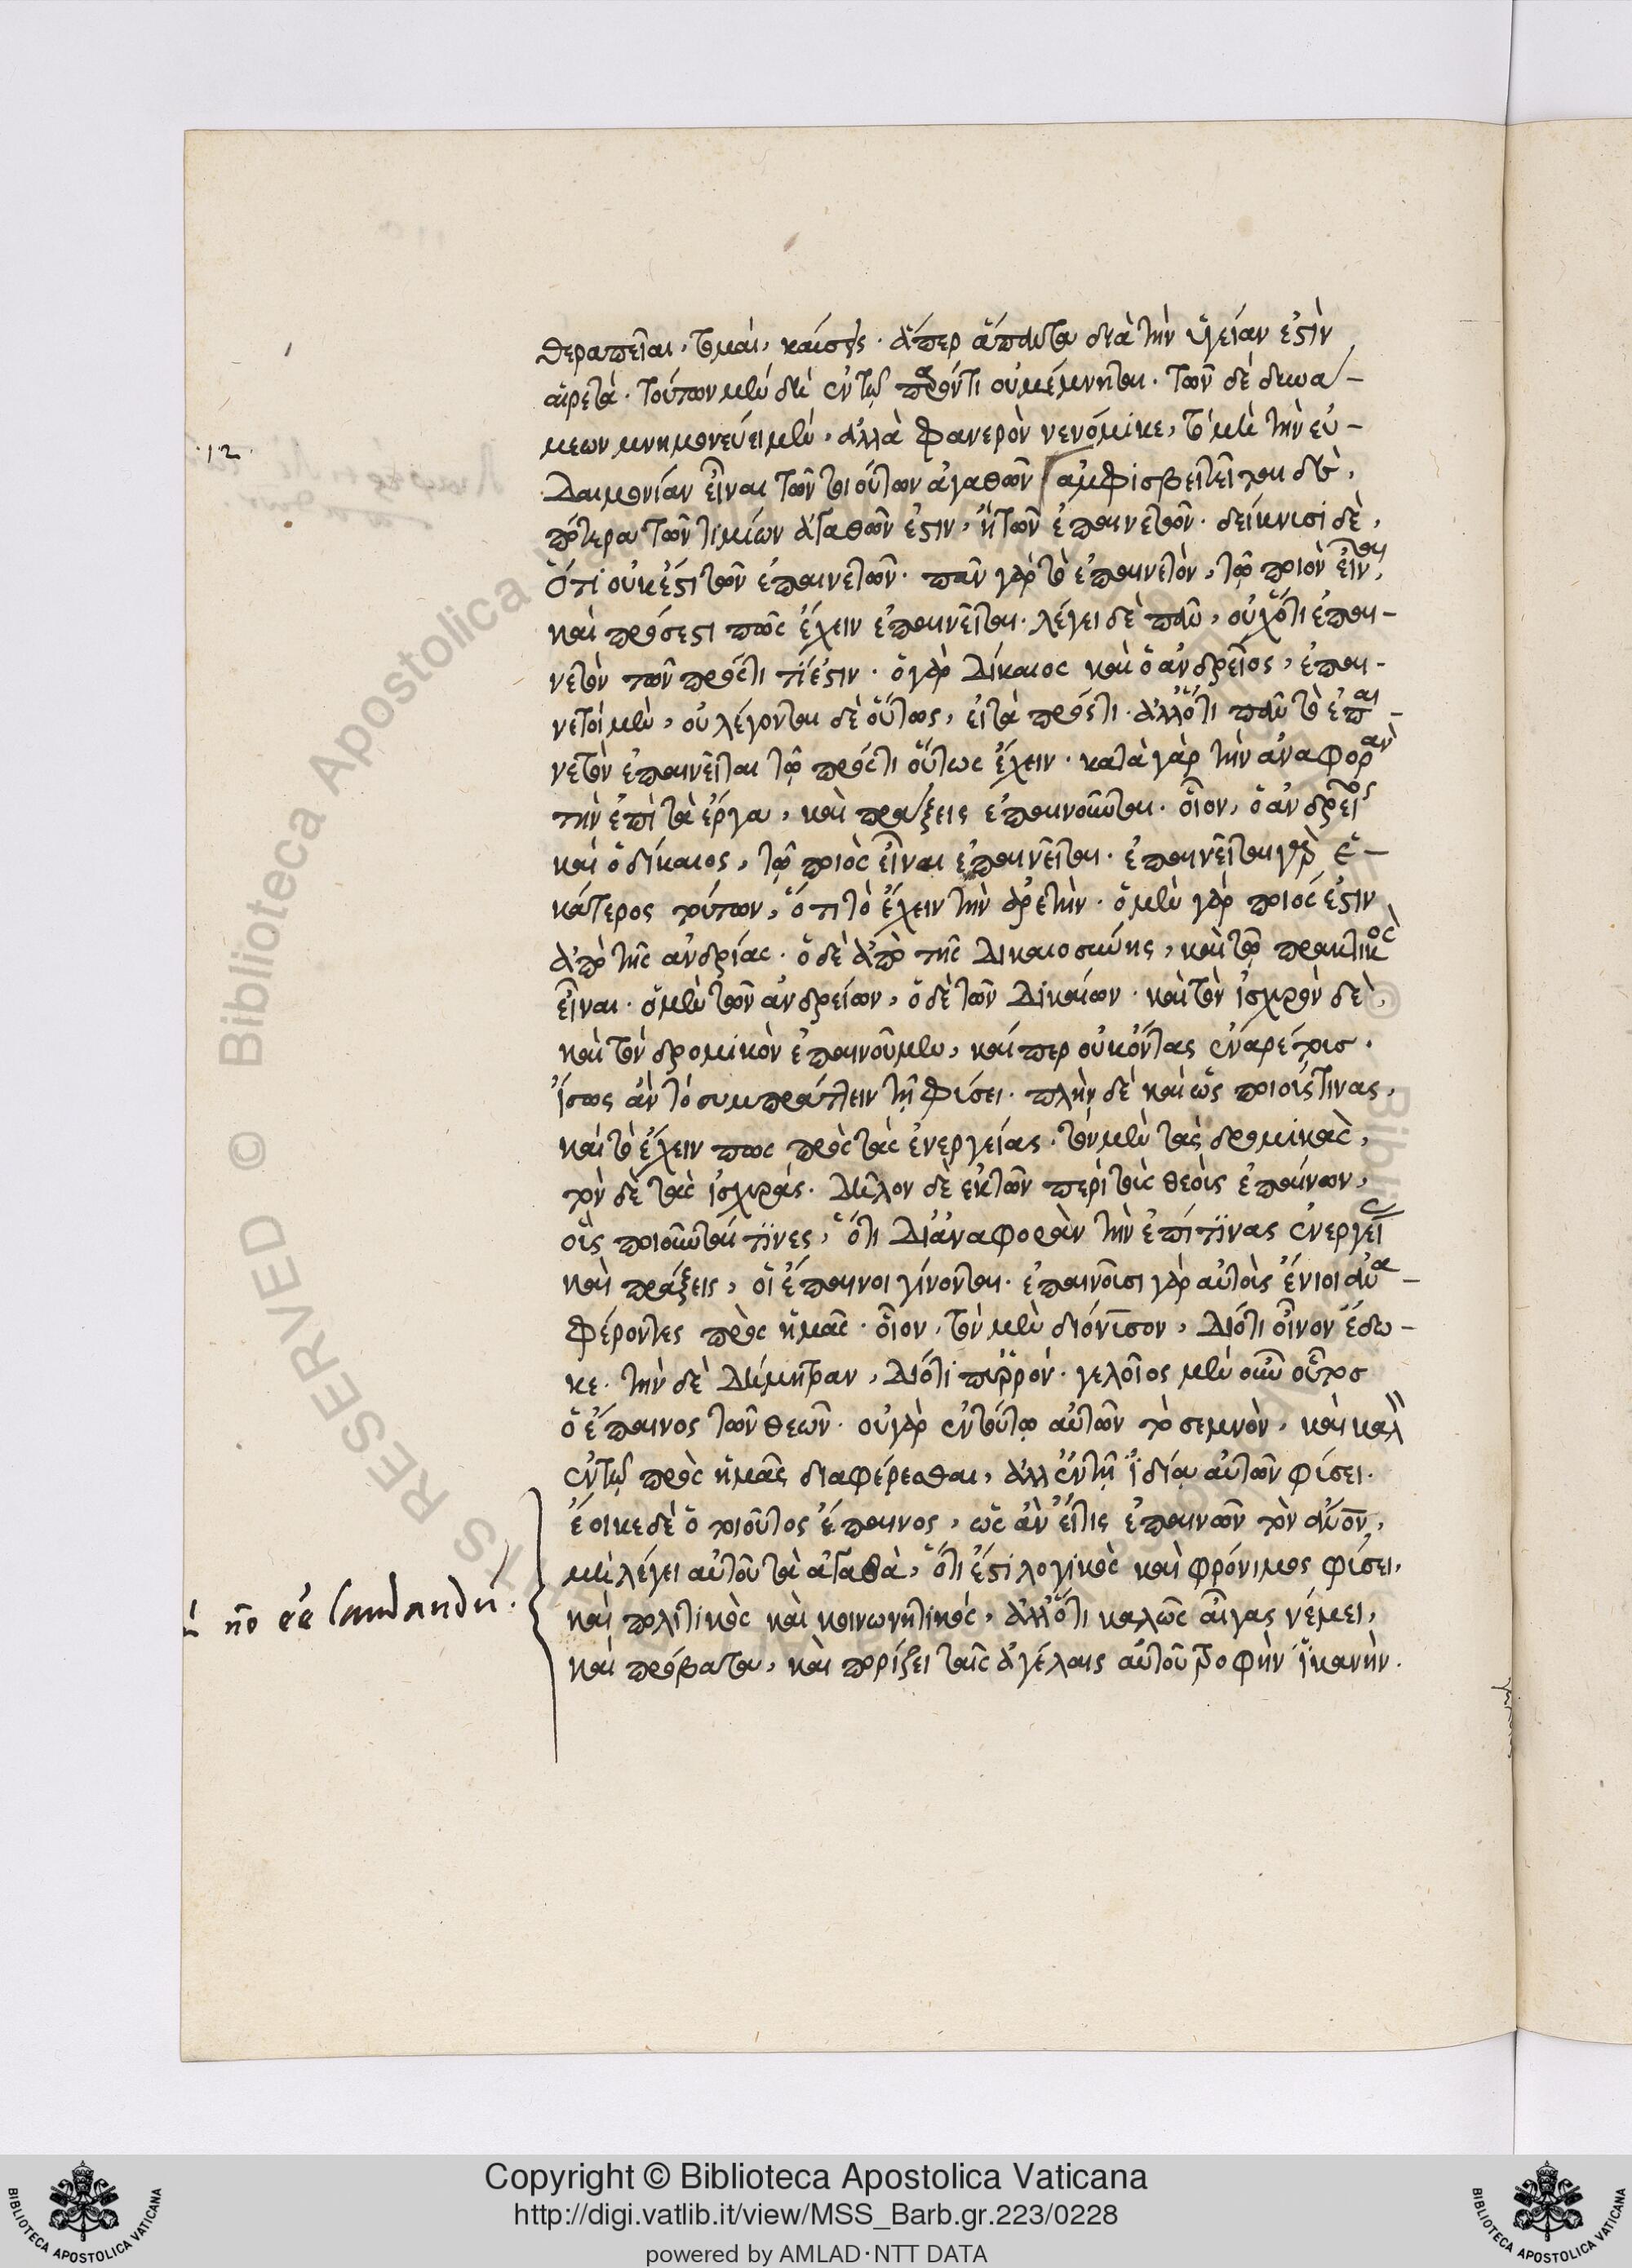 θεραπεῖαι, τομαὶ, καύσεις. ἅπερ ἅπαντα διὰ τὴν ὑγείαν ἐστὶν
αἱρετά. τούτων μὲν δὴ ἐν τῷ παρόντι οὐ μέμνηται. τῶν δὲ δυνά-
μεων μνημονεύει μὲν, ἀλλὰ φανερὸν νενόμικε, τὸ μὴ τὴν εὐ-
12
δαιμονίαν εἶναι τῶν τοιούτων ἀγαθῶν ἀμφισβειτεῖται δὲ,
πότερα τῶν τιμίων ἀγαθῶν ἐστιν, ἢ τῶν ἐπαινετῶν. δείκνυσι δὲ,
ὅτι οὐκ ἔστι τῶν ἐπαινετῶν. πᾶν γὰρ τὸ ἐπαινετὸν, τῷ ποιὸν εἶναι,
καὶ πρός ἐστι πῶς ἔχειν ἐπαινεῖται. λέγει δὲ πᾶν, οὐχ ὅτι ἐπαι-
νετὸν τῶν πρός τι τί ἐστιν. ὁ γὰρ δίκαιος καὶ ὁ ἀνδρεῖος, ἐπαι-
νετοὶ μὲν, οὐ λέγονται δὲ οὕτως, εἰ τὰ πρός τι. ἀλλ' ὅτι πᾶν τὸ ἐπαι-
νετὸν ἐπαινεῖται τῷ πρός τι οὕτως ἔχειν. κατὰ γὰρ τὴν ἀναφορὰν
τὴν ἐπὶ τὰ ἔργα, καὶ πράξεις ἐπαινοῦνται. οἷον, ὁ ἀνδρεῖος
καὶ ὁ δίκαιος, τῷ ποιὸς εἶναι ἐπαινεῖται. ἐπαινεῖται γὰρ ἑ-
κάτερος τούτων, ὅτι τὸ ἔχειν τὴν ἀρετὴν. ὁ μὲν γὰρ ποιός ἐστιν
ἀπὸ τῆς ἀνδρίας. ὁ δὲ ἀπὸ τῆς δικαιοσύνης, καὶ τῷ πρακτικὸς
εἶναι. ὁ μὲν τῶν ἀνδρείων, ὁ δὲ τῶν δικαίων. καὶ τὸν ἰσχυρὸν δὲ,
καὶ τὸν δρομικὸν ἐπαινοῦμεν, καίπερ οὐκ ὄντας ἐναρέτοις.
ἴσως ἂν τὸ συμπράττειν τῇ φύσει. πλὴν δὲ καὶ ὡς ποιούς τινας,
καὶ τὸ ἔχειν πως πρὸς τὰς ἐνεργείας. τὸν μὲν τὰς δρομικὰς,
τὸν δὲ τὰς ἰσχυράς. δῆλον δὲ ἐκ τῶν περὶ τοὺς θεοὺς ἐπαίνων,
οἷς ποιοῦνταί τινες, ὅτι δι' ἀναφορὰν τὴν ἐπί τινας ἐνεργείας
καὶ πράξεις, οἱ ἔπαινοι γίνονται. ἐπαινοῦσι γὰρ αὐτοὺς ἔνιοι ἀνα-
φέροντες πρὸς ἡμᾶς. οἷον, τὸν μὲν διόνυσον, διότι οἶνον ἔδω-
κε. τὴν δὲ δήμητραν, διότι πυῤῥόν. γελοῖος μὲν οὖν οὗτος
ὁ ἔπαινος τῶν θεῶν. οὐ γὰρ ἐν τούτῳ αὐτῶν τὸ σεμνὸν, καὶ καλ
ἐν τῷ πρὸς ἡμᾶς διαφέρεσθαι, ἀλλ' ἐν τῇ ἰδίᾳ αὐτῶν φύσει.
ἔοικε δὲ ὁ τοιοῦτος ἔπαινος, ὡς ἂν εἴ τις ἐπαινῶν τὸν ἄνον,
μὴ λέγει αὐτοῦ τὰ ἀγαθὰ, ὅτι ἐστὶ λογικὸς καὶ φρόνιμος φύσει,
nō eē laudandū.
καὶ πολιτικὸς καὶ κοινωνητικὸς, ἀλλ' ὅτι καλῶς αἶγας νέμει,
καὶ πρόβατα, καὶ πορίζει ταῖς ἀγέλαις αὐτοῦ τροφὴν ἱκανὴν.
Copyright © Biblioteca Apostolica Vaticana
http://digi.vatlib.it/view/MSS_Barb.gr.223/0228
powered by AMLAD·NTT DATA